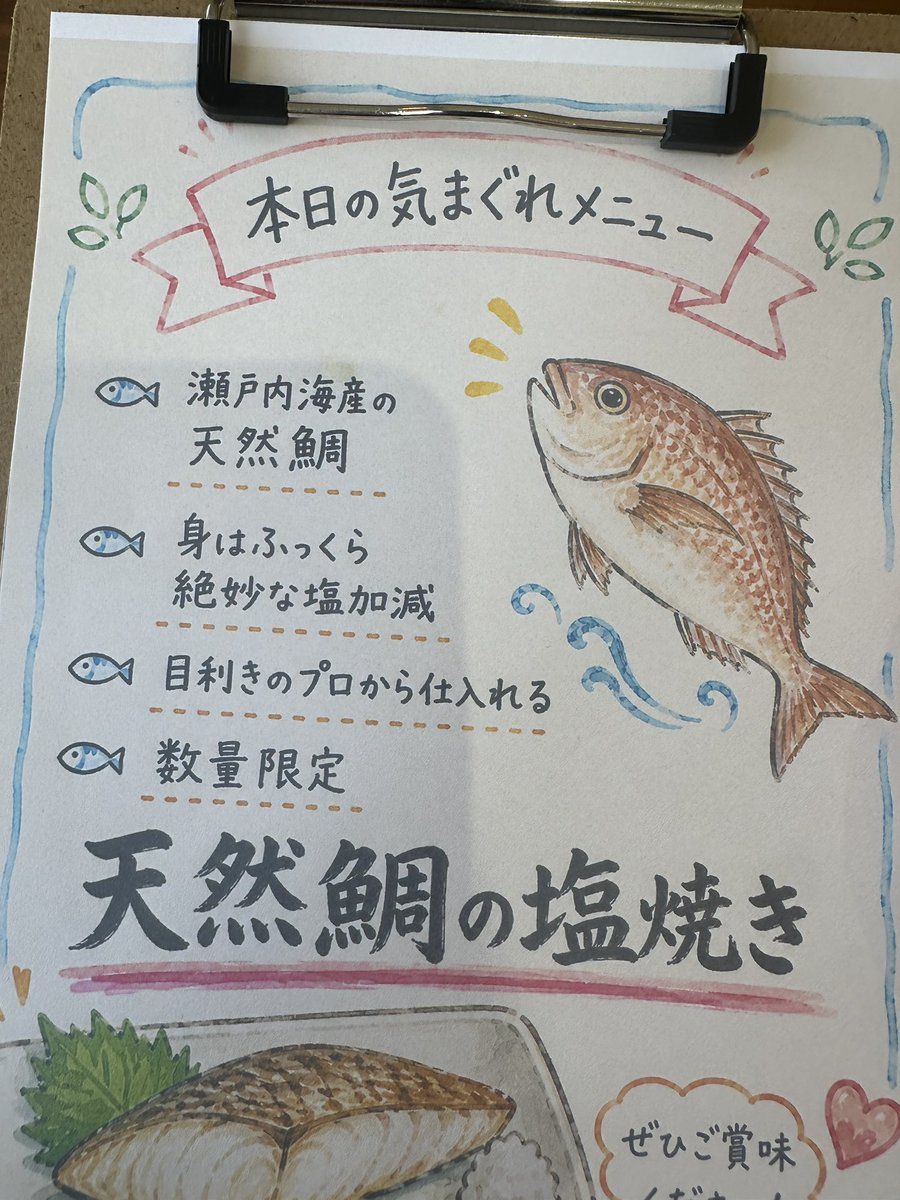 本日の気まぐれメニュー
瀬戸内海産の
天然鯛
身はふっくら
絶妙な塩加減
目利きのプロから仕入れる
数量限定
天然鯛の塩焼き
ぜひご賞味